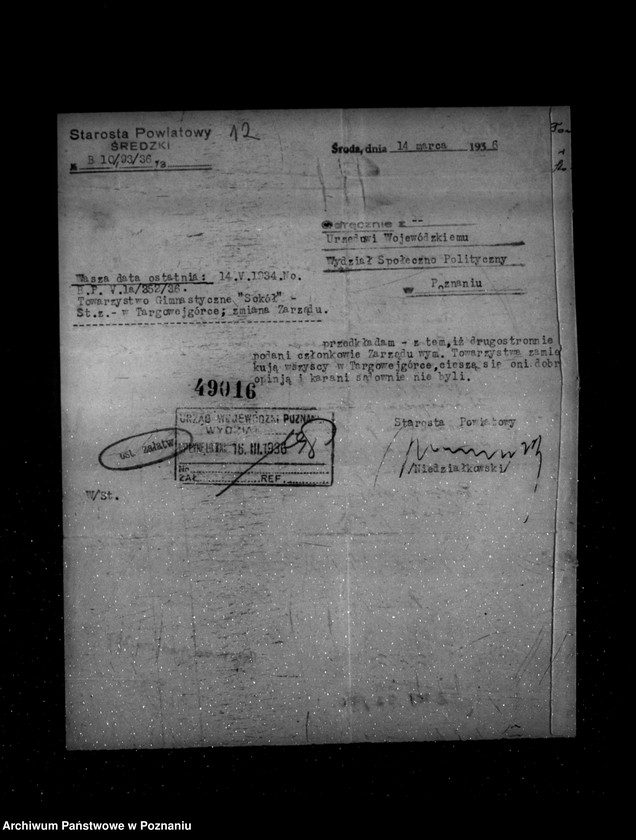 Starosta Powiatowy
ŚREDZKI
B 10/93/36
12
Środa, dnia 14 marca 1936
Odręcznie z --
Urzędowi Wojewódzkiemu
Wydział Społeczno Polityczny
w Poznaniu
Wasza data ostatnia: 14.V.1934.No.
Towarzystwo Gimnastyczne "Sokół" -
St.z.- w Targowejgórce; zmiana Zarządu.
przedkładam - z tem, iż drugostronnie
podani członkowie Zarządu wym. Towarzystwa zamie
kują wszyscy w Targowejgórce, cieszą się oni dobr
opinją i karani sądownie nie byli.
49016
URZĄD WOJEWÓDZKI POZNAŃ
WYDZIAŁ
16.III.1936
Nr.
ZAŁ. REF.
ost. załatw.
Starosta Powiatowy
/Niedziałkowski/
W/St.
Archiwum Państwowe w Poznaniu